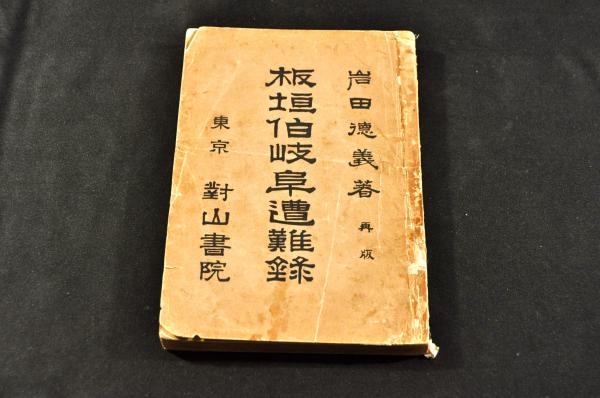 岩田德義著 再版
板垣伯岐阜遭難錄
東京 對山書院